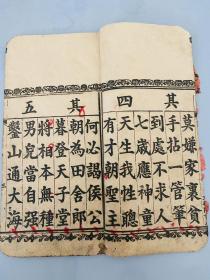 其四
莫嫌家裏貧
手拈一管筆
到處不求人
七歲應神童
天生我性聰
有才朝聖主
其五
何必謁侯公
朝為田舍郎
暮登天子堂
將相本無種
男兒當自强
鑿山通大海